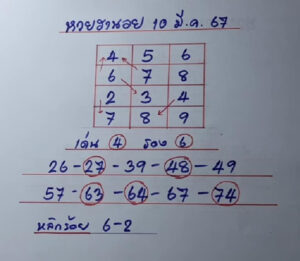 หวยฮานอย 10 มี.ค. 67
4 5 6
6 7 8
2 3 4
7 8 9
เด่น 4 รอง 6
26-27-39-48-49
57-63-64-67-74
หลักร้อย 6-2